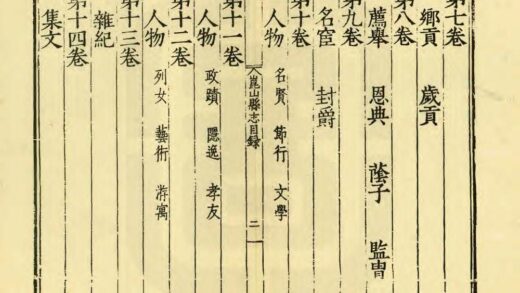 第七卷
鄉貢 歲貢
第八卷
薦舉 恩典 蔭子 監胄
第九卷
名宦 封爵
第十卷
人物 名賢 節行 文學
崑山縣志目録 二
第十一卷
人物 政蹟 隱逸 孝友
第十二卷
人物 列女 藝術 游寓
第十三卷
雜紀
第十四卷
集文